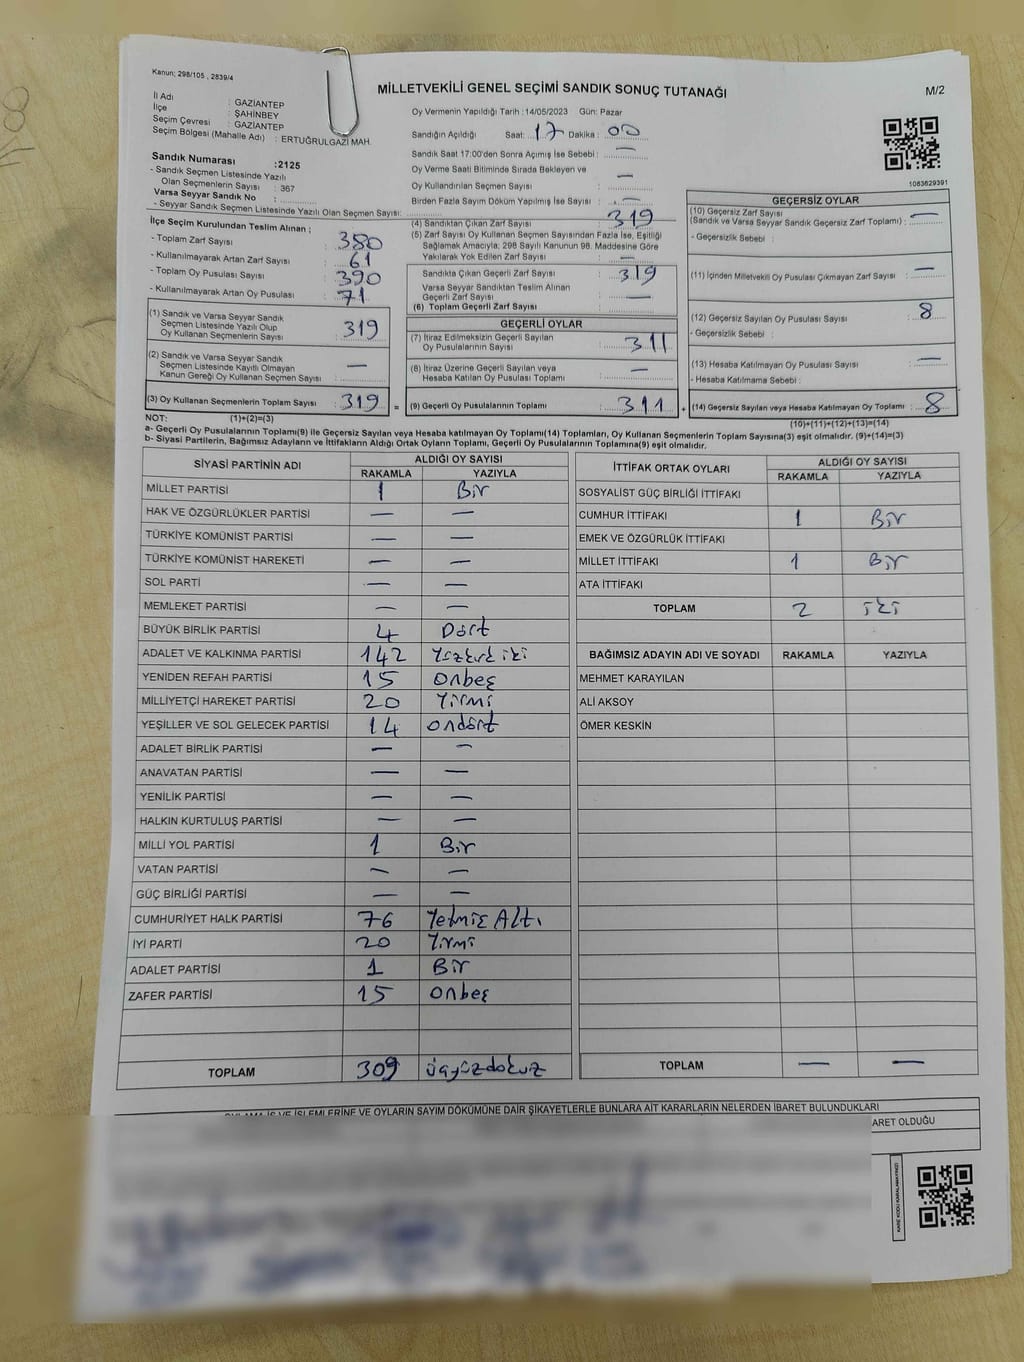 Kanun; 298/105 , 2839/4
MİLLETVEKİLİ GENEL SEÇİMİ SANDIK SONUÇ TUTANAĞI
M/2
İl Adı : GAZİANTEP
İlçe : ŞAHİNBEY
Seçim Çevresi : GAZİANTEP
Seçim Bölgesi (Mahalle Adı) : ERTUĞRULGAZİ MAH.
Sandık Numarası :2125
- Sandık Seçmen Listesinde Yazılı
Olan Seçmenlerin Sayısı : 367
Varsa Seyyar Sandık No :
- Seyyar Sandık Seçmen Listesinde Yazılı Olan Seçmen Sayısı:
Oy Vermenin Yapıldığı Tarih :14/05/2023 Gün: Pazar
Sandığın Açıldığı Saat: 17 Dakika : 00
Sandık Saat 17:00'den Sonra Açımış İse Sebebi : —
Oy Verme Saati Bitiminde Sırada Bekleyen ve
Oy Kullandırılan Seçmen Sayısı : —
Birden Fazla Sayım Döküm Yapılmış İse Sayısı : —
1083629391
İlçe Seçim Kurulundan Teslim Alınan ;
- Toplam Zarf Sayısı : 380
- Kullanılmayarak Artan Zarf Sayısı : 61
- Toplam Oy Pusulası Sayısı : 390
- Kullanılmayarak Artan Oy Pusulası : 71
(1) Sandık ve Varsa Seyyar Sandık
Seçmen Listesinde Yazılı Olup
Oy Kullanan Seçmenlerin Sayısı : 319
(2) Sandık ve Varsa Seyyar Sandık
Seçmen Listesinde Kayıtlı Olmayan
Kanun Gereği Oy Kullanan Seçmen Sayısı : —
(3) Oy Kullanan Seçmenlerin Toplam Sayısı : 319 =
(4) Sandıktan Çıkan Zarf Sayısı : 319
(5) Zarf Sayısı Oy Kullanan Seçmen Sayısından Fazla İse, Eşitliği
Sağlamak Amacıyla; 298 Sayılı Kanunun 98. Maddesine Göre
Yakılarak Yok Edilen Zarf Sayısı : —
Sandıkta Çıkan Geçerli Zarf Sayısı : 319
Varsa Seyyar Sandıktan Teslim Alınan
Geçerli Zarf Sayısı : —
(6) Toplam Geçerli Zarf Sayısı :
GEÇERLİ OYLAR
(7) İtiraz Edilmeksizin Geçerli Sayılan
Oy Pusulalarının Sayısı : 311
(8) İtiraz Üzerine Geçerli Sayılan veya
Hesaba Katılan Oy Pusulası Toplamı : —
(9) Geçerli Oy Pusulalarının Toplamı : 311 +
GEÇERSİZ OYLAR
(10) Geçersiz Zarf Sayısı
(Sandık ve Varsa Seyyar Sandık Geçersiz Zarf Toplamı) : —
- Geçersizlik Sebebi :
(11) İçinden Milletvekili Oy Pusulası Çıkmayan Zarf Sayısı : —
(12) Geçersiz Sayılan Oy Pusulası Sayısı : 8
- Geçersizlik Sebebi :
(13) Hesaba Katılmayan Oy Pusulası Sayısı : —
- Hesaba Katılmama Sebebi :
(14) Geçersiz Sayılan veya Hesaba Katılmayan Oy Toplamı : 8
NOT: (1)+(2)=(3) (10)+(11)+(12)+(13)=(14)
a- Geçerli Oy Pusulalarının Toplamı(9) ile Geçersiz Sayılan veya Hesaba katılmayan Oy Toplamı(14) Toplamları, Oy Kullanan Seçmenlerin Toplam Sayısına(3) eşit olmalıdır. (9)+(14)=(3)
b- Siyasi Partilerin, Bağımsız Adayların ve İttifakların Aldığı Ortak Oyların Toplamı, Geçerli Oy Pusulalarının Toplamına(9) eşit olmalıdır.
SİYASİ PARTİNİN ADI ALDIĞI OY SAYISI
RAKAMLA YAZIYLA
MİLLET PARTİSİ 1 Bir
HAK VE ÖZGÜRLÜKLER PARTİSİ — —
TÜRKİYE KOMÜNİST PARTİSİ — —
TÜRKİYE KOMÜNİST HAREKETİ — —
SOL PARTİ — —
MEMLEKET PARTİSİ — —
BÜYÜK BİRLİK PARTİSİ 4 Dört
ADALET VE KALKINMA PARTİSİ 142 Yüzkırk iki
YENİDEN REFAH PARTİSİ 15 Onbeş
MİLLİYETÇİ HAREKET PARTİSİ 20 Yirmi
YEŞİLLER VE SOL GELECEK PARTİSİ 14 Ondört
ADALET BİRLİK PARTİSİ — —
ANAVATAN PARTİSİ — —
YENİLİK PARTİSİ — —
HALKIN KURTULUŞ PARTİSİ — —
MİLLİ YOL PARTİSİ 1 Bir
VATAN PARTİSİ — —
GÜÇ BİRLİĞİ PARTİSİ — —
CUMHURİYET HALK PARTİSİ 76 Yetmiş Altı
İYİ PARTİ 20 Yirmi
ADALET PARTİSİ 1 Bir
ZAFER PARTİSİ 15 Onbeş
TOPLAM 309 üçyüzdokuz
İTTİFAK ORTAK OYLARI ALDIĞI OY SAYISI
RAKAMLA YAZIYLA
SOSYALİST GÜÇ BİRLİĞİ İTTİFAKI
CUMHUR İTTİFAKI 1 Bir
EMEK VE ÖZGÜRLÜK İTTİFAKI
MİLLET İTTİFAKI 1 Bir
ATA İTTİFAKI
TOPLAM 2 iki
BAĞIMSIZ ADAYIN ADI VE SOYADI RAKAMLA YAZIYLA
MEHMET KARAYILAN
ALİ AKSOY
ÖMER KESKİN
TOPLAM — —
OYLAMA İŞ VE İŞLEMLERİNE VE OYLARIN SAYIM DÖKÜMÜNE DAİR ŞİKAYETLERLE BUNLARA AİT KARARLARIN NELERDEN İBARET BULUNDUKLARI
ARET OLDUĞU
KARE KODU KARALAMAYINIZ!